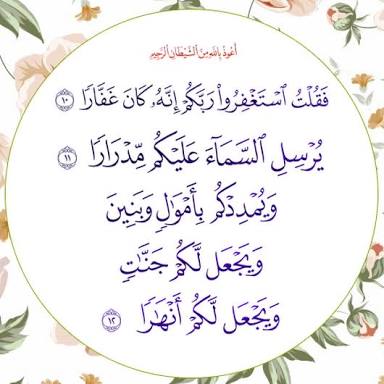 أَعُوذُ بِاللهِ مِنَ الشَّيْطَانِ الرَّجِيمِ
فَقُلْتُ ٱسْتَغْفِرُوا۟ رَبَّكُمْ إِنَّهُۥ كَانَ غَفَّارًا ١٠
يُرْسِلِ ٱلسَّمَآءَ عَلَيْكُم مِّدْرَارًا ١١
وَيُمْدِدْكُم بِأَمْوَٰلٍ وَبَنِينَ
وَيَجْعَل لَّكُمْ جَنَّٰتٍ
وَيَجْعَل لَّكُمْ أَنْهَٰرًا ١٢